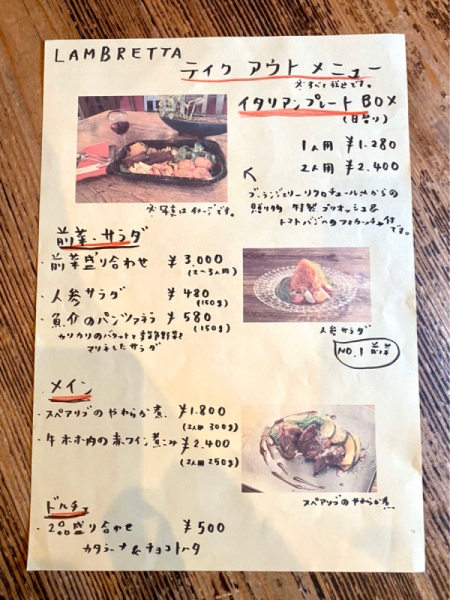 LAMBRETTA
テイク アウト メニュー
※すべて税込です。
イタリアンプレート BOX
(日替り)
1人用 ¥1.280
2人用 ¥2.400
ブーランジェリーリクロチュールさんからの
贈り物 特製ブリオッシュ&
トマトバジルのフォカッチャ付
です。
※写真はイメージです。
前菜・サラダ
・前菜盛り合わせ ¥3,000
(2~3人用)
・人参サラダ ¥480
(150g)
・魚介のパンツァネラ ¥580
(150g)
カリカリのバケットと季節野菜を
マリネしたサラダ
人参サラダ
NO.1 前菜
・メイン
・スペアリブのやわらか煮 ¥1.800
(2人用 300g)
・牛ホホ肉の赤ワイン煮こみ ¥2.400
(2人用 250g)
スペアリブのやわらか煮
・ドルチェ
・2品盛り合わせ ¥500
カタラーナ&チョコトルタ